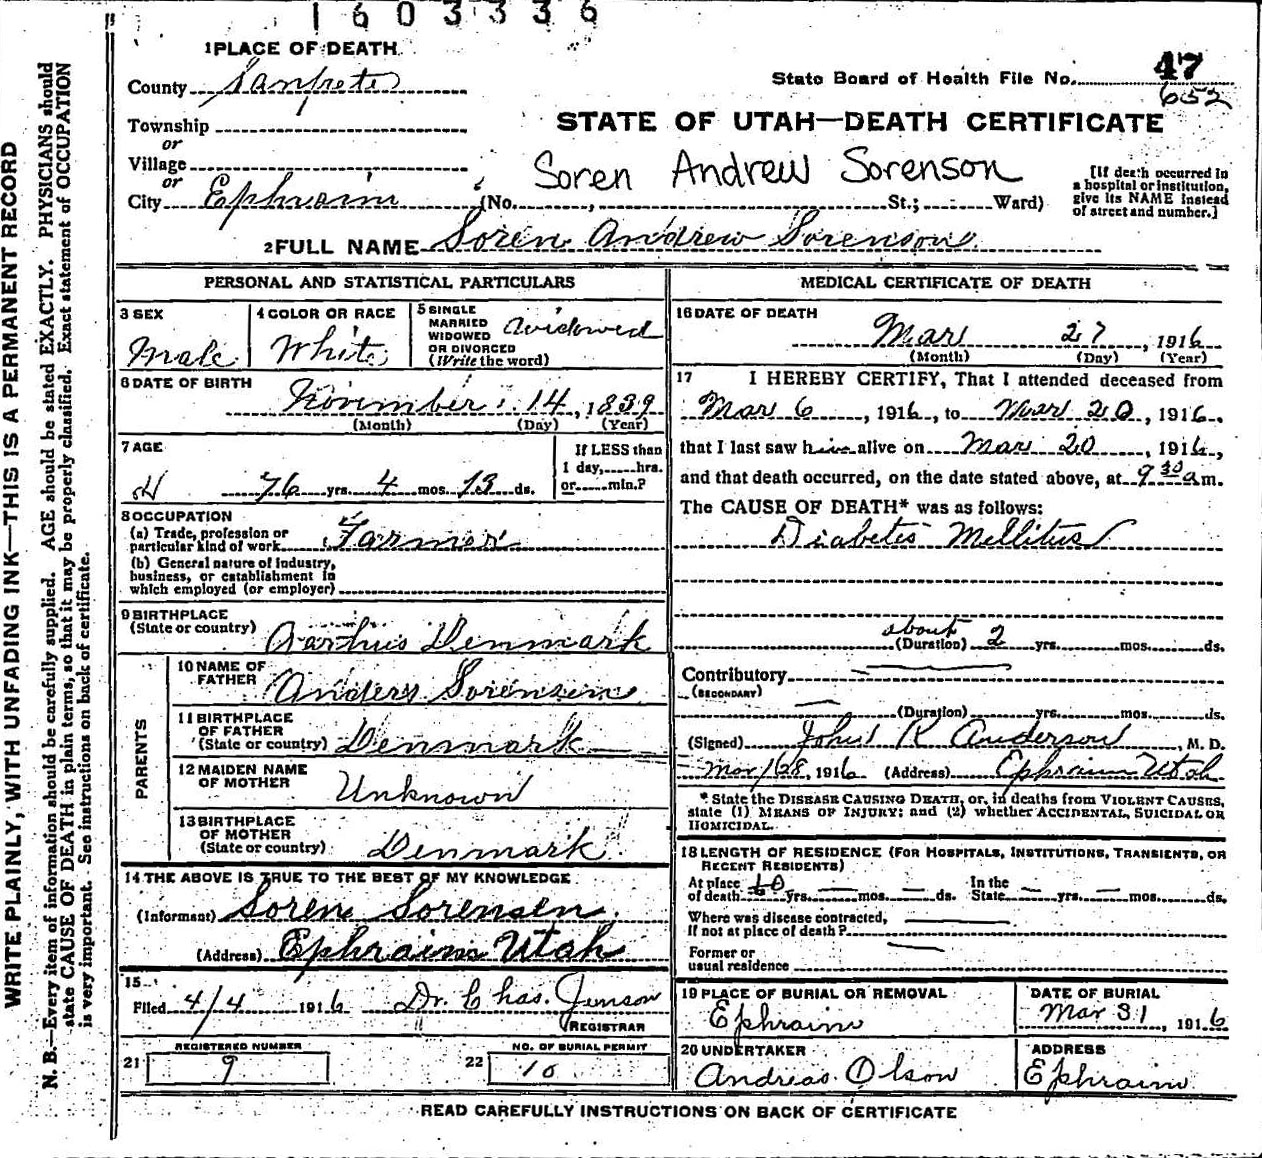 1603336
1 PLACE OF DEATH
County Sanpete
State Board of Health File No. 47
652
Township
or
Village
or
City Ephraim
STATE OF UTAH—DEATH CERTIFICATE
Soren Andrew Sorenson
(No. , St.; Ward)
[If death occurred in
a hospital or institution,
give its NAME instead
of street and number.]
2 FULL NAME Soren Andrew Sorenson
PERSONAL AND STATISTICAL PARTICULARS
3 SEX
Male
4 COLOR OR RACE
White
5 SINGLE
MARRIED
WIDOWED
OR DIVORCED
(Write the word)
Widowed
6 DATE OF BIRTH
November 14, 1839
(Month) (Day) (Year)
7 AGE
76 yrs. 4 mos. 13 ds.
If LESS than
1 day, hrs.
or min.?
8 OCCUPATION
(a) Trade, profession or
particular kind of work Farmer
(b) General nature of Industry,
business, or establishment in
which employed (or employer)
9 BIRTHPLACE
(State or country) Aarhus Denmark
PARENTS
10 NAME OF
FATHER Anders Sorensen
11 BIRTHPLACE
OF FATHER
(State or country) Denmark
12 MAIDEN NAME
OF MOTHER Unknown
13 BIRTHPLACE
OF MOTHER
(State or country) Denmark
14 THE ABOVE IS TRUE TO THE BEST OF MY KNOWLEDGE
(Informant) Soren Sorensen
(Address) Ephraim Utah
15
Filed 4/4 1916 Dr. Chas. Jenson
REGISTRAR
REGISTERED NUMBER
21 9
NO. OF BURIAL PERMIT
22 10
MEDICAL CERTIFICATE OF DEATH
16 DATE OF DEATH
Mar 27, 1916
(Month) (Day) (Year)
17 I HEREBY CERTIFY, That I attended deceased from
Mar 6, 1916, to Mar 20, 1916,
that I last saw him alive on Mar 20, 1916,
and that death occurred, on the date stated above, at 9 30 a m.
The CAUSE OF DEATH* was as follows:
Diabetis Mellitus
about 2
(Duration) yrs. mos. ds.
Contributory
(SECONDARY)
(Duration) yrs. mos. ds.
(Signed) John K Anderson, M. D.
Mar 28, 1916 (Address) Ephraim Utah
* State the DISEASE CAUSING DEATH, or, in deaths from VIOLENT CAUSES,
state (1) MEANS OF INJURY; and (2) whether ACCIDENTAL, SUICIDAL OR
HOMICIDAL.
18 LENGTH OF RESIDENCE (FOR HOSPITALS, INSTITUTIONS, TRANSIENTS, OR
RECENT RESIDENTS)
At place of death 60 yrs. mos. ds. In the State yrs. mos. ds.
Where was disease contracted,
If not at place of death?
Former or
usual residence
19 PLACE OF BURIAL OR REMOVAL
Ephraim
DATE OF BURIAL
Mar 31, 1916
20 UNDERTAKER
Andreas Olson
ADDRESS
Ephraim
READ CAREFULLY INSTRUCTIONS ON BACK OF CERTIFICATE
WRITE PLAINLY, WITH UNFADING INK—THIS IS A PERMANENT RECORD
N. B.—Every item of information should be carefully supplied. AGE should be stated EXACTLY. PHYSICIANS should
state CAUSE OF DEATH in plain terms, so that it may be properly classified. Exact statement of OCCUPATION
is very important. See instructions on back of certificate.